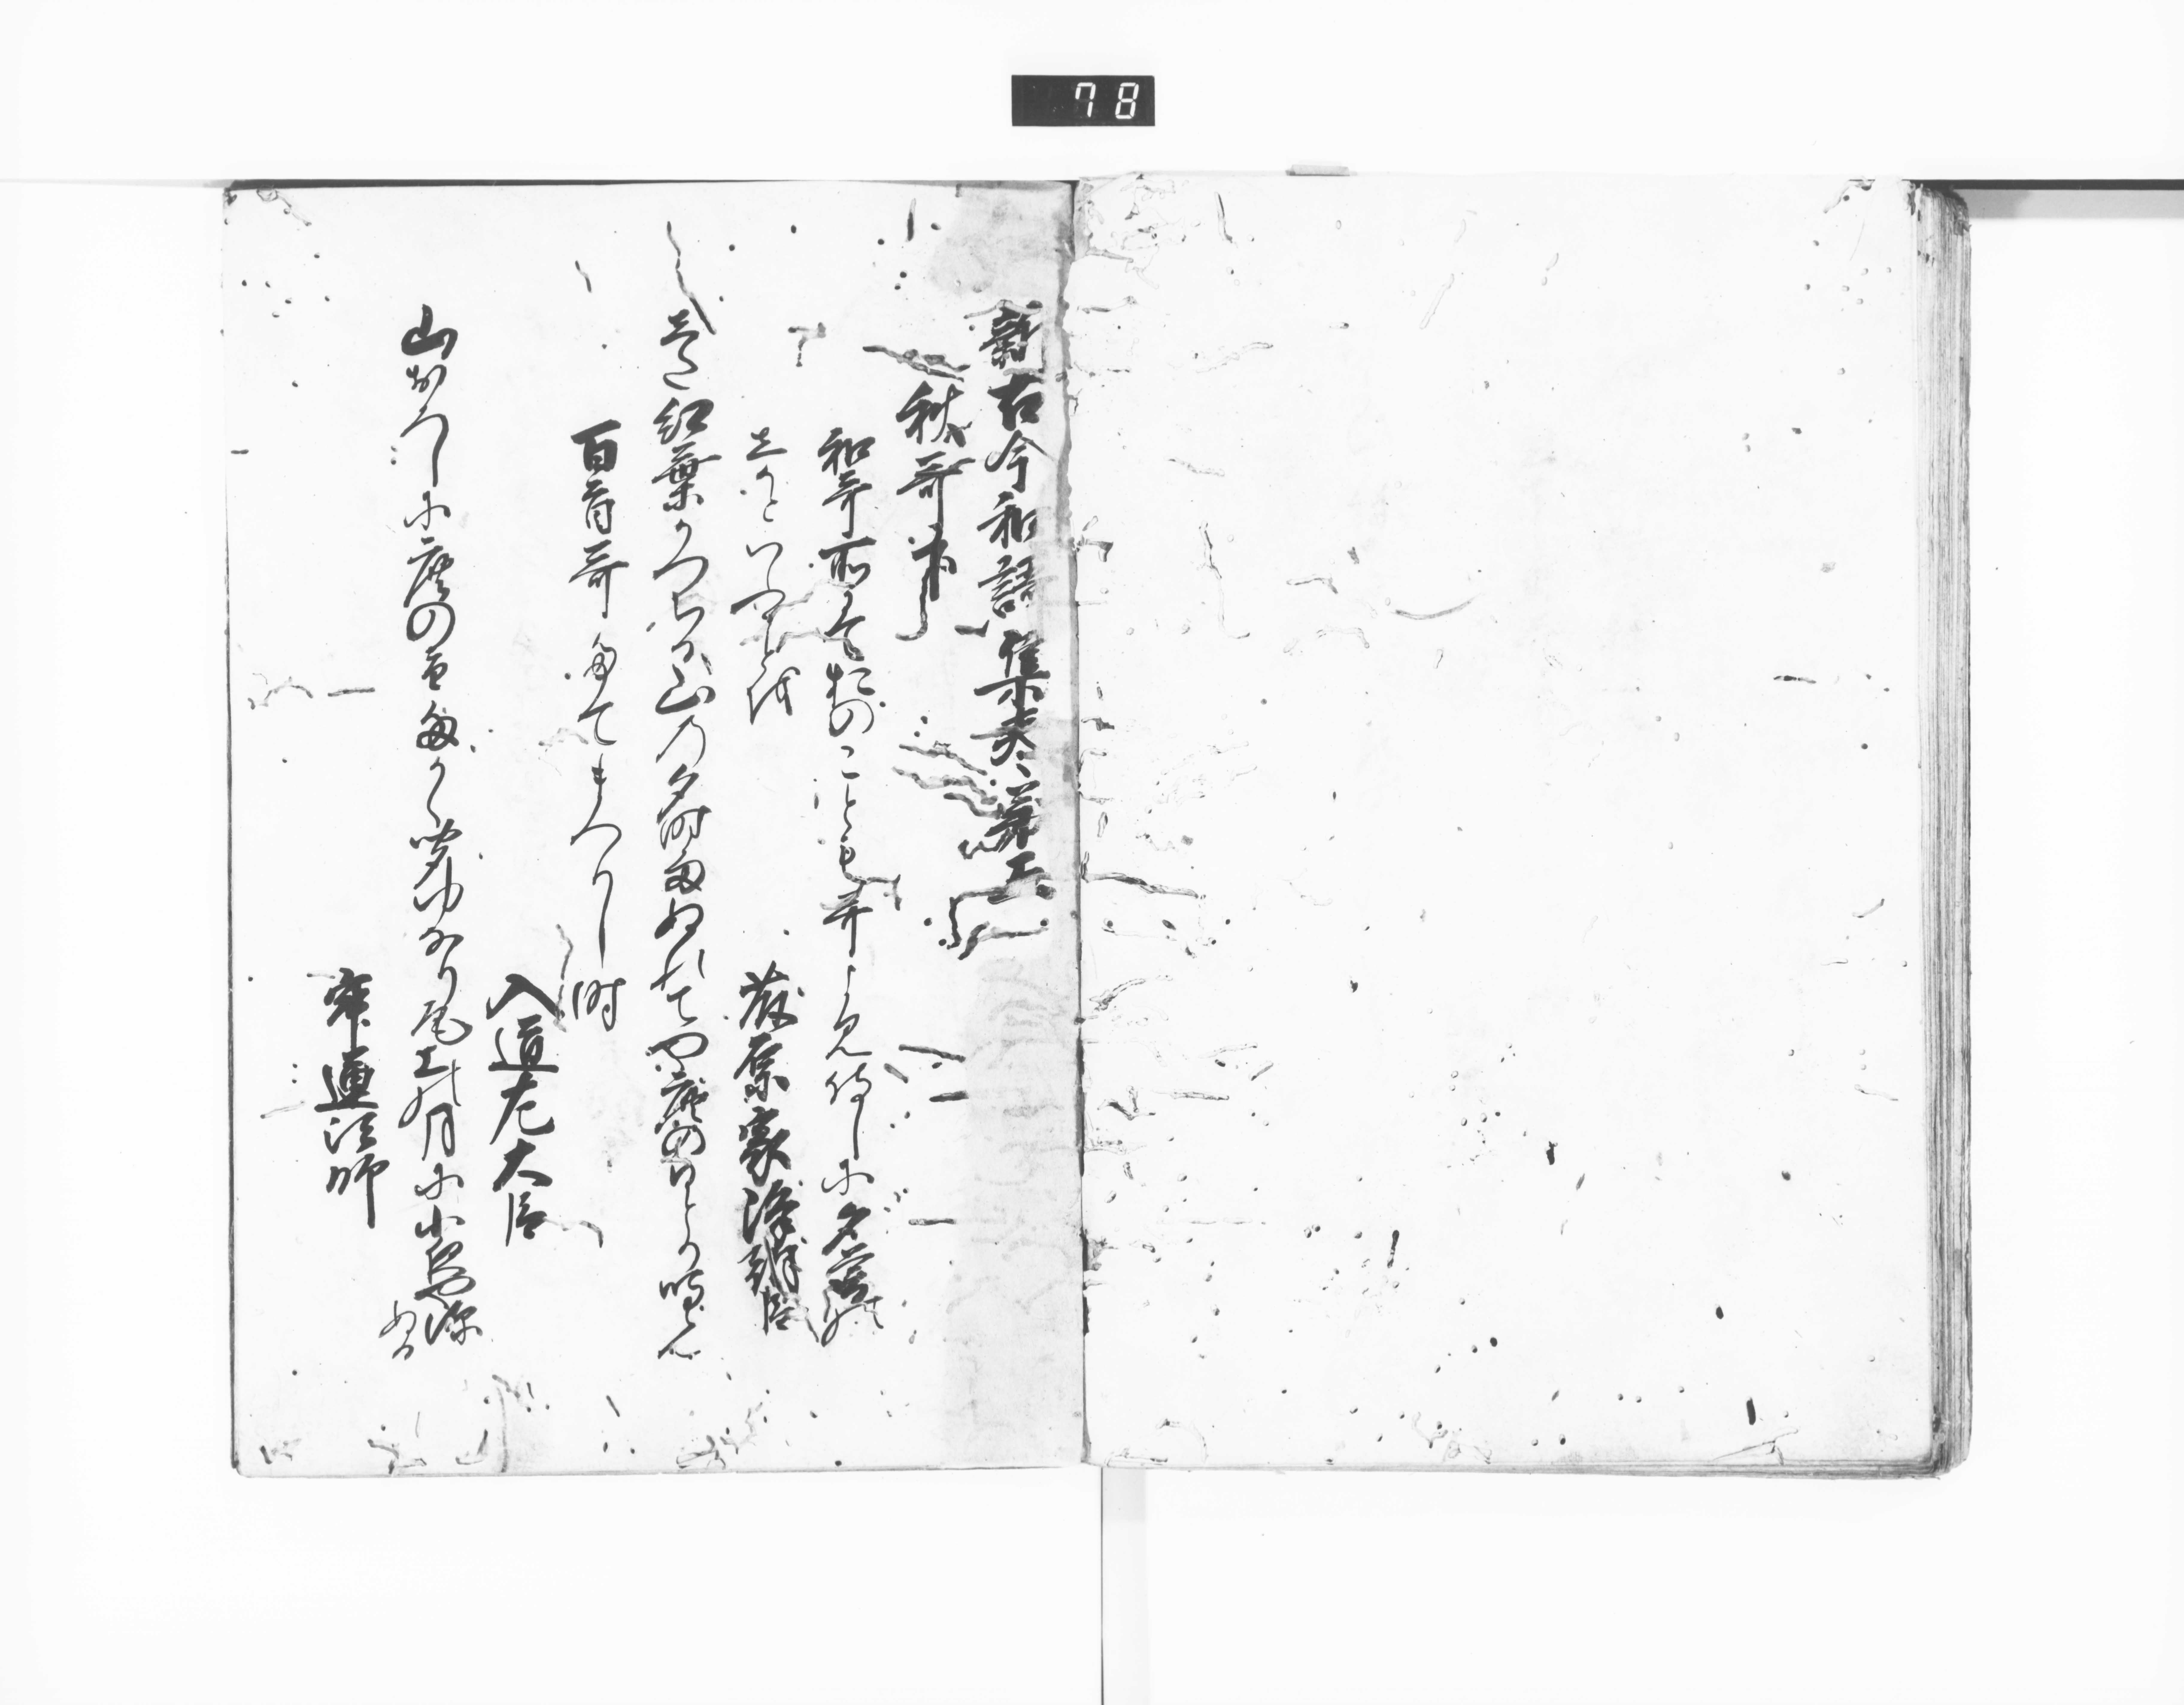 78
新古今和謌集巻第五
秋哥下
和哥所にてをのこども哥よみ侍しに夕鹿
といふことを
藤原家隆朝臣
した紅葉かつちる山の夕時雨ぬれてや鹿のひとり鳴らん
百首哥たてまつりし時
入道左大臣
山おろしに鹿の音たかく聞ゆなり尾上の月に小夜や深
ぬる
寂蓮法師